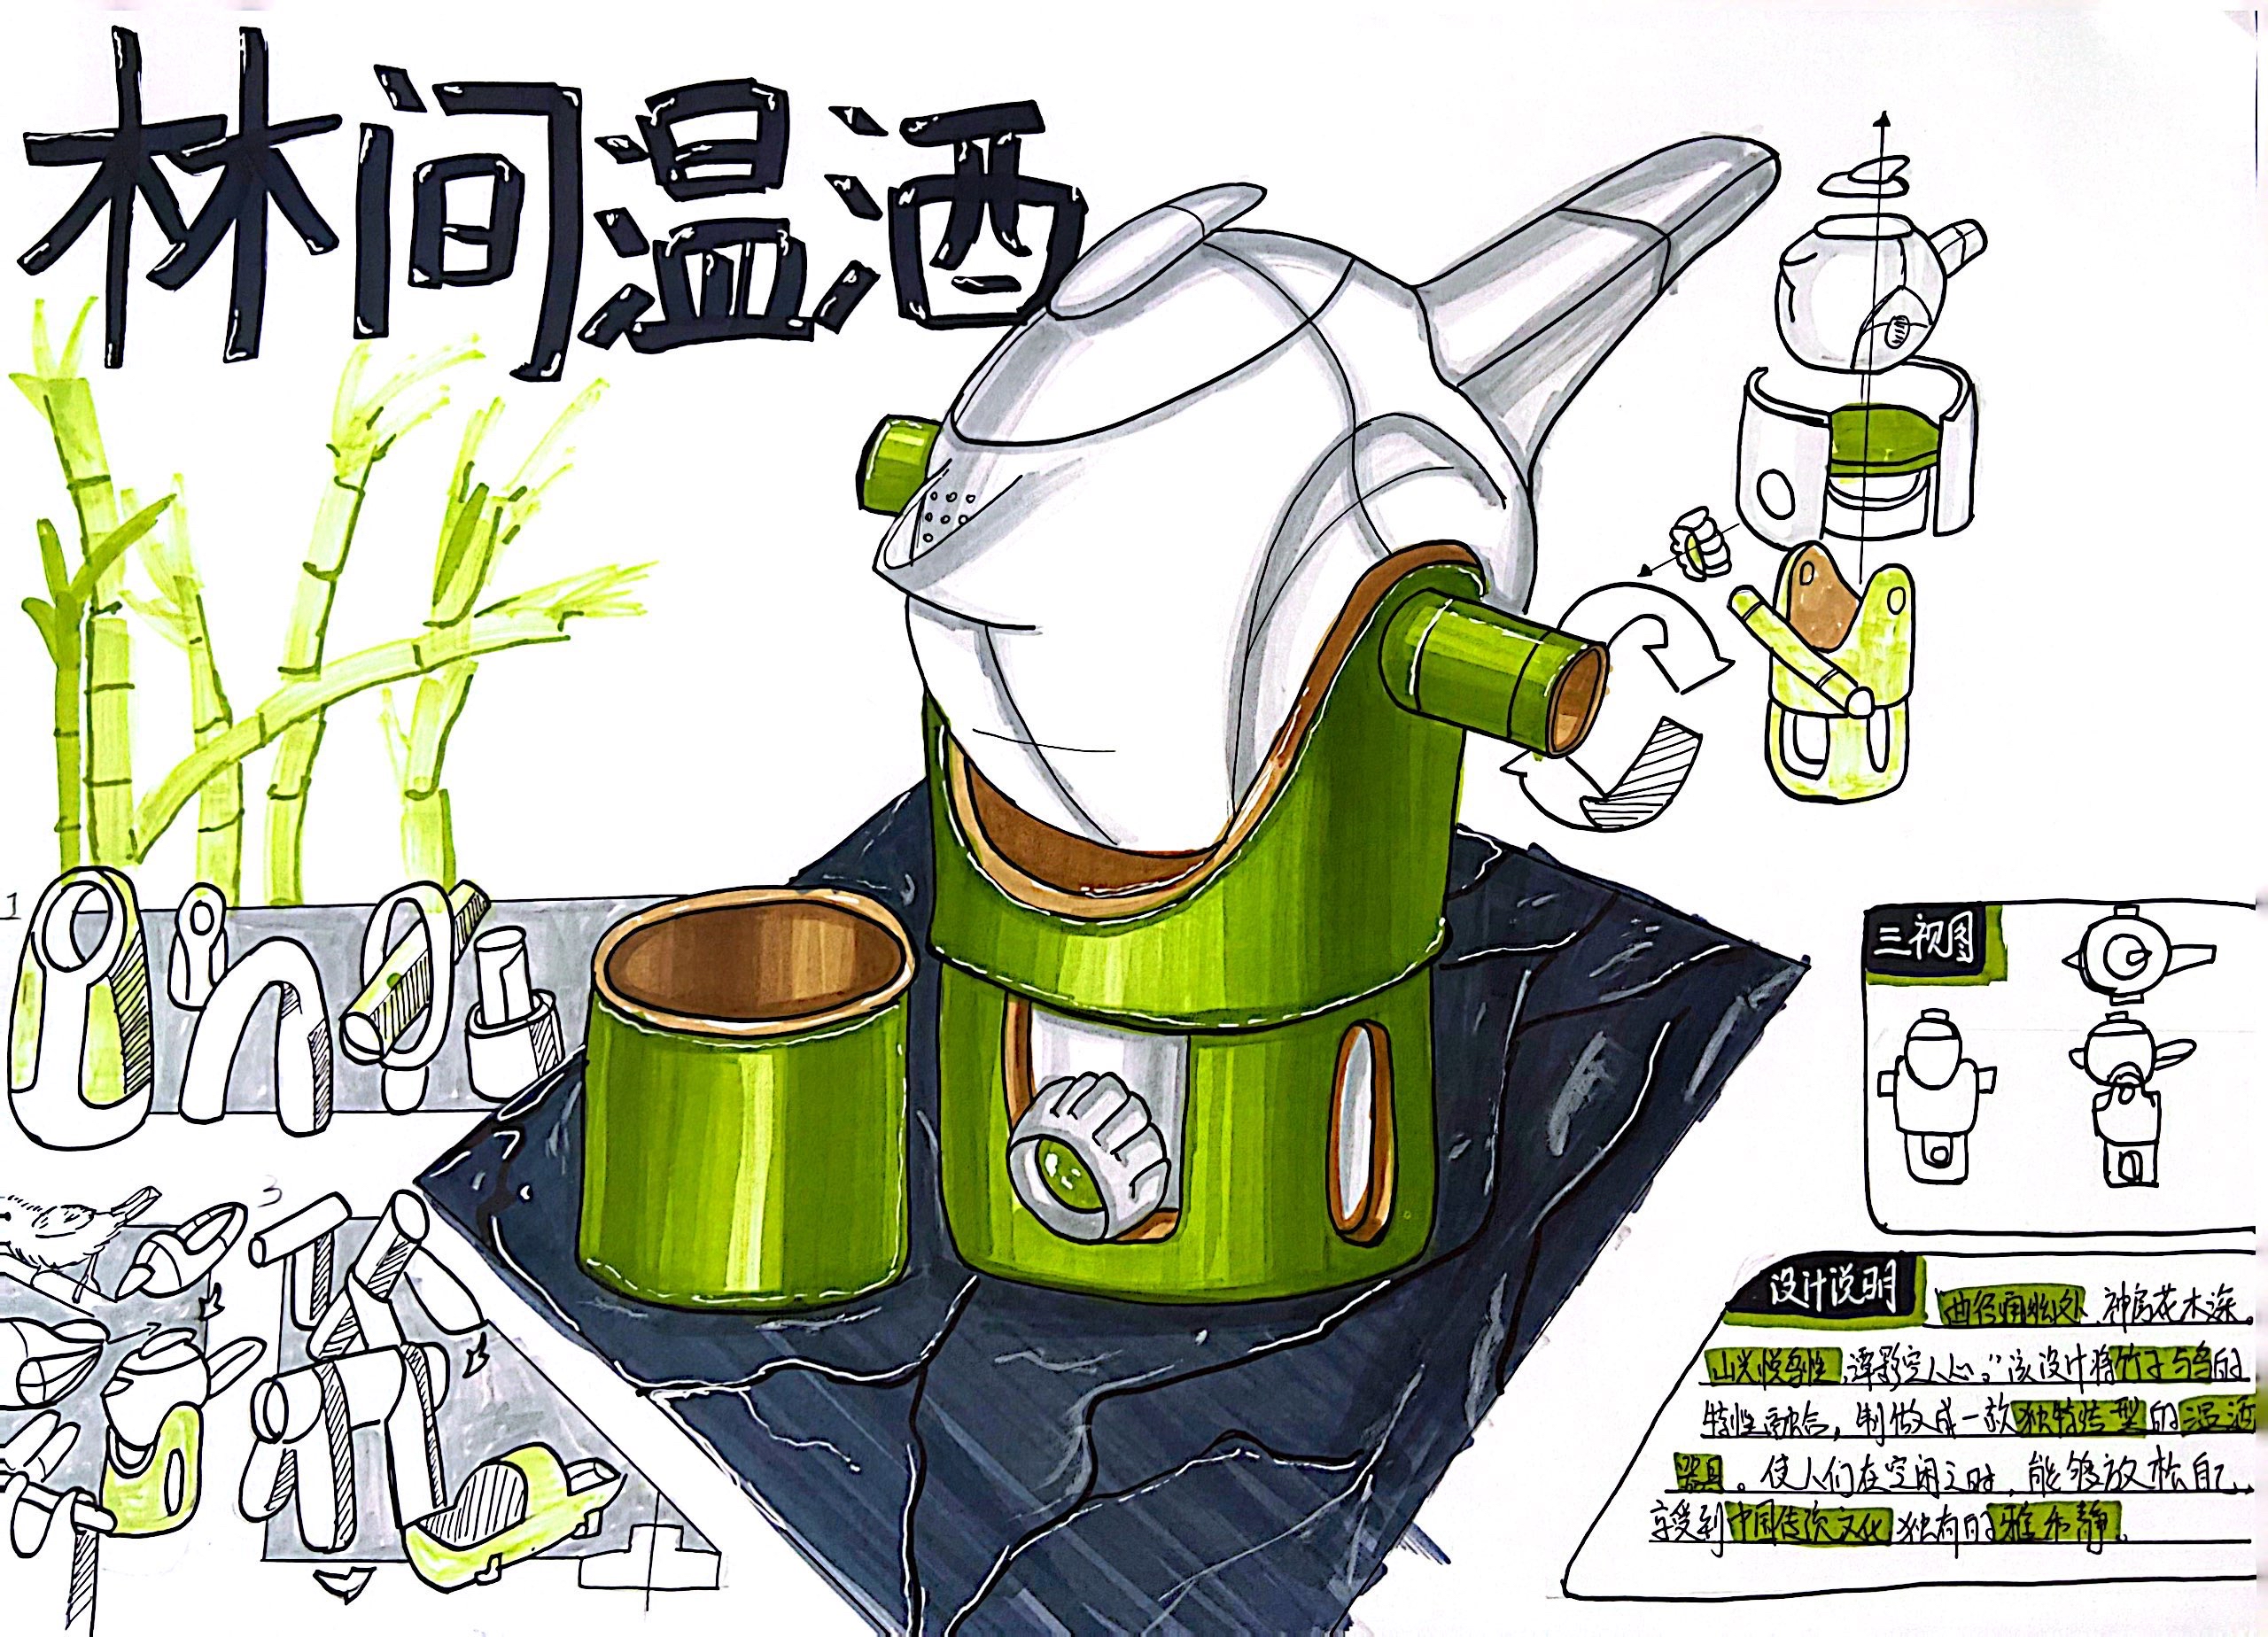 林间温酒
1
3
三视图
设计说明
曲径通幽处,禅房花木深。
山光悦鸟性,潭影空人心。"该设计将竹子与鸟的
特性融合,制做成一款独特造型的温酒
器具。使人们在空闲之时,能够放松自己,
享受到中国传统文化独有的雅和静。